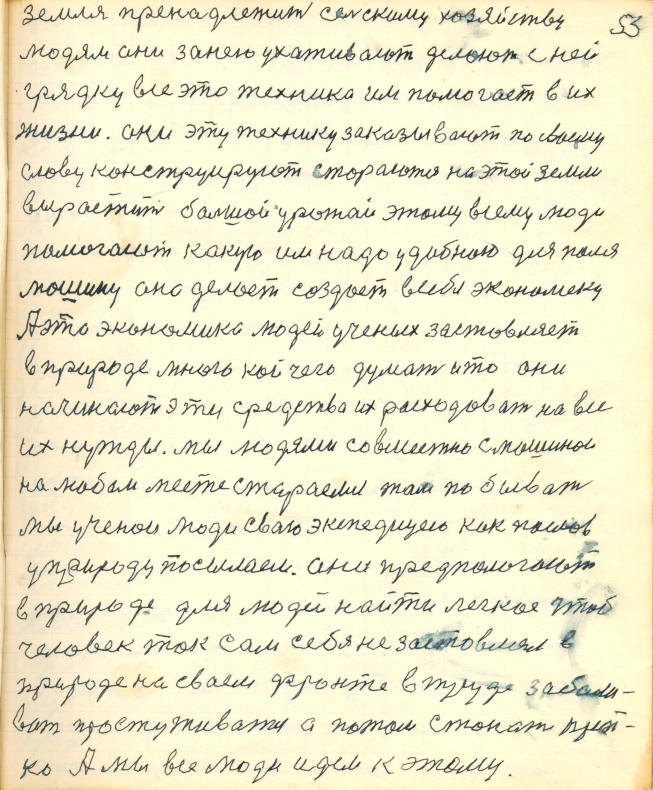 53
земля пренадлежит селскому хозяйству
людям они занею ухаживают делоют с ней
грядку все это техника им помогает в их
жизни. они эту технику заказывают по своему
слову конструируют стораются на этой земли
вырастит балшой урожай этому всему люди
помогают какую им надо удобною для поля
мошину она делает создает всебя экономеку
А эта экономика людей ученых застовляет
в природе много кой чего думат и то они
начинают эти средства их росходоват на все
их нужды. мы людями совместно с мошиной
на любом месте стараемы там побыват
мы ученои люди сваю экспедицею как послов
уприроду посылаем. они предпологают
в природе для людей найти легкое чтоб
человек так сам себя не застовлял в
природе на сваем фронте в труде заболи-
ват простуживатя а потом стонат
ко А мы все люди идем к этому.